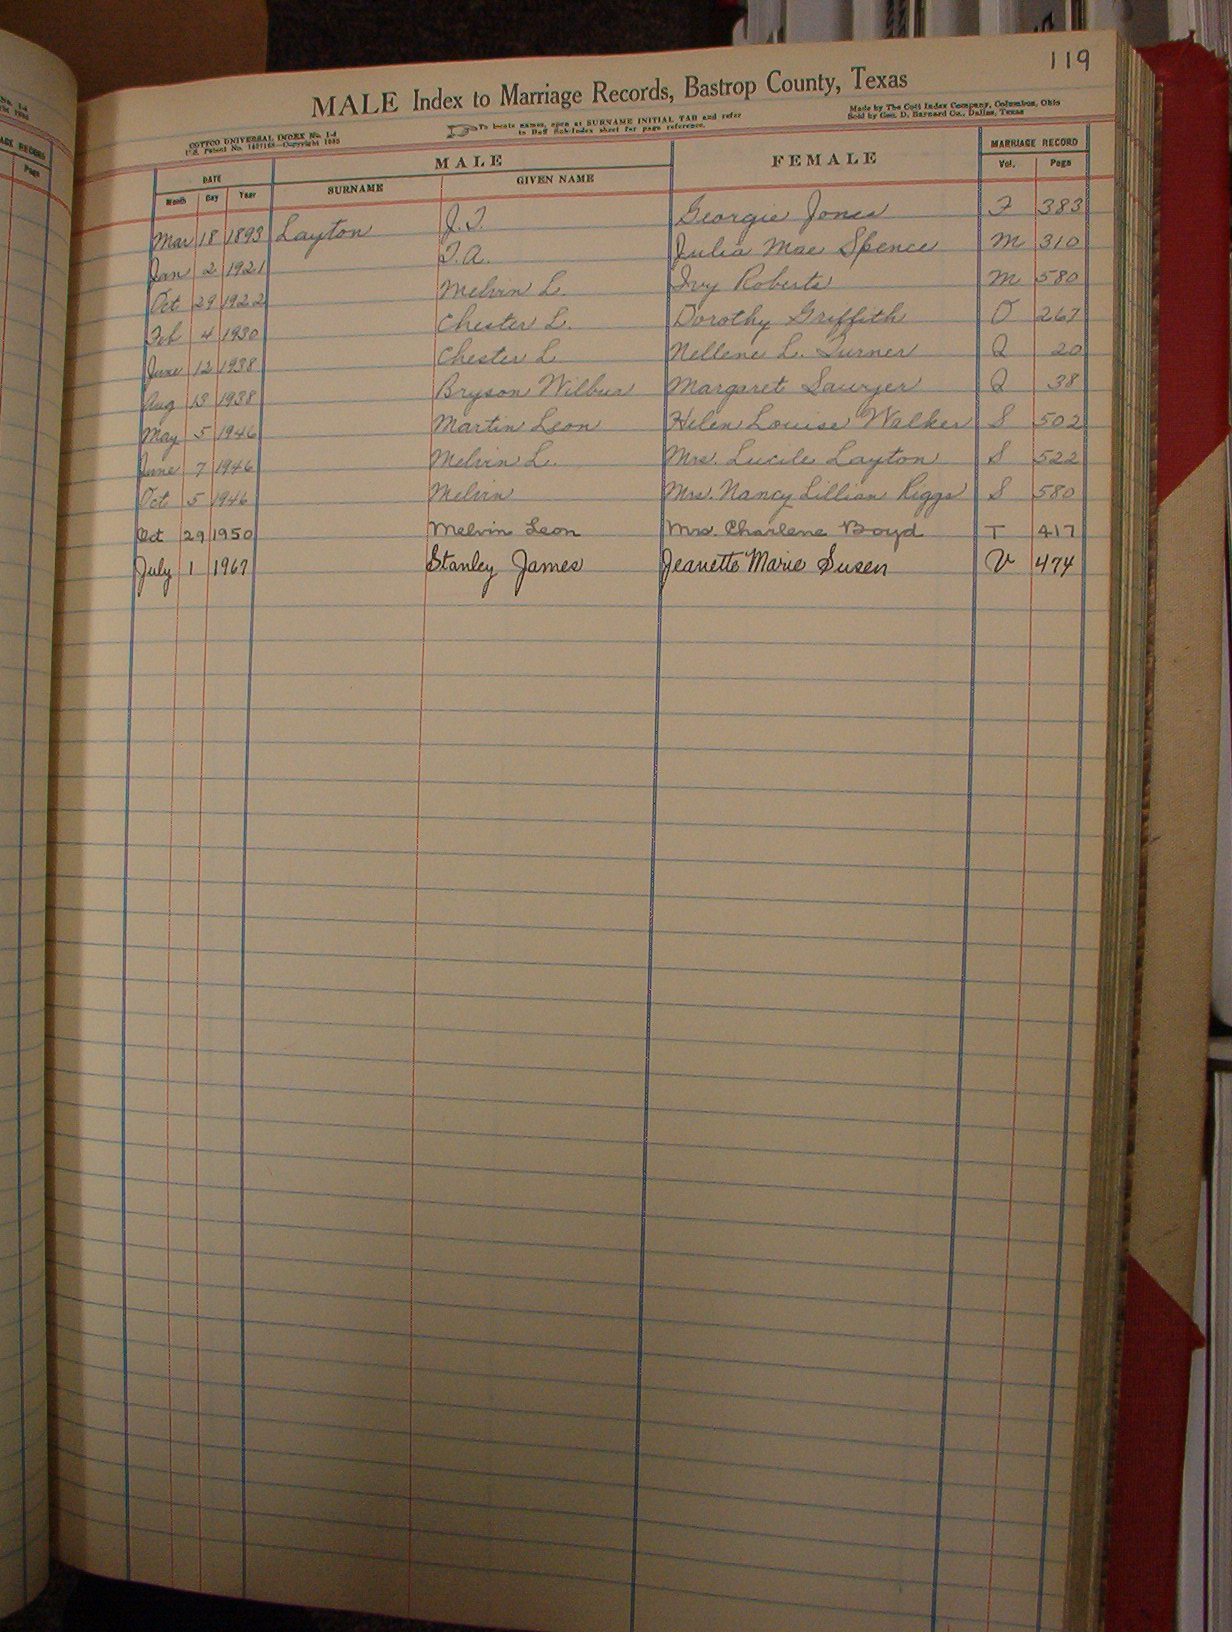 119
MALE Index to Marriage Records, Bastrop County, Texas
COTTCO UNIVERSAL INDEX No. 1-4
To locate names, open at SURNAME INITIAL TAB and refer
to Buff Sub-Index sheet for page reference.
Made by The Cott Index Company, Columbus, Ohio
Sold by Geo. D. Barnard Co., Dallas, Texas
DATE MALE FEMALE MARRIAGE RECORD
Month Day Year SURNAME GIVEN NAME Vol. Page
Mar 18 1893 Layton J.T. Georgie Jones F 383
Jan 2 1921 T.A. Julia Mae Spence M 310
Oct 29 1922 Melvin L. Ivy Roberts M 580
Feb 4 1930 Chester L. Dorothy Griffith O 267
June 12 1938 Chester L. Nellene L. Turner Q 20
Aug 13 1938 Bryson Wilbur Margaret Sawyer Q 38
May 5 1946 Martin Leon Helen Louise Walker S 502
June 7 1946 Melvin L. Mrs. Lucile Layton S 522
Oct 5 1946 Melvin Mrs. Nancy Lillian Riggs S 580
Oct 29 1950 Melvin Leon Mrs. Charlene Boyd T 417
July 1 1967 Stanley James Jeanette Marie Susen V 474